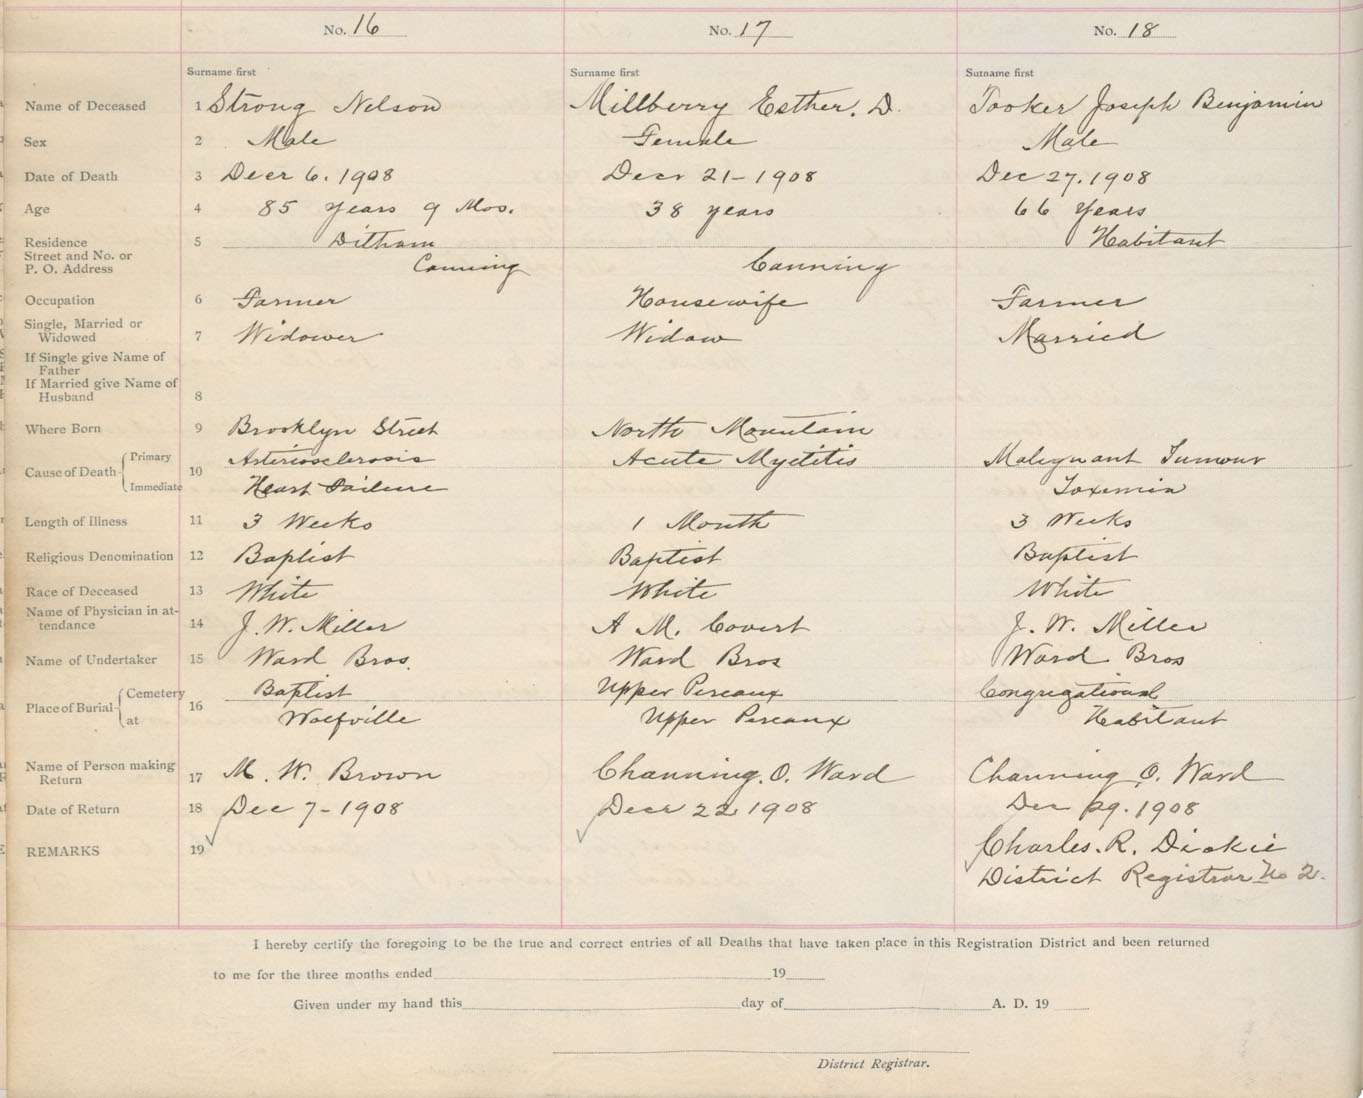 No. 16 No. 17 No. 18
Surname first Surname first Surname first
Name of Deceased 1 Strong Nelson Millberry Esther. D. Tooker Joseph Benjamin
Sex 2 Male Female Male
Date of Death 3 Decr 6. 1908 Decr 21- 1908 Dec 27. 1908
Age 4 85 years 9 Mos. 38 years 66 Years
Residence 5 Habitant
Street and No. or
P. O. Address Canning Canning
Occupation 6 Farmer Housewife Farmer
Single, Married or
Widowed 7 Widower Widow Married
If Single give Name of
Father
If Married give Name of
Husband 8
Where Born 9 Brooklyn Street North Mountain
Cause of Death Primary 10 Arteriosclerosis Acute Myelitis Malignant Tumour
Immediate Heart Failure Toxemia
Length of Illness 11 3 Weeks 1 Month 3 Weeks
Religious Denomination 12 Baptist Baptist Baptist
Race of Deceased 13 White White White
Name of Physician in at-
tendance 14 J. W. Miller A M. Covert J. W. Miller
Name of Undertaker 15 Ward Bros. Ward Bros Ward Bros
Place of Burial Cemetery 16 Baptist Upper Pereaux Congregational
at Wolfville Upper Pereaux Habitant
Name of Person making
Return 17 M. W. Brown Channing. O. Ward Channing O. Ward
Date of Return 18 Dec 7- 1908 Decr 22. 1908 Dec 29. 1908
REMARKS 19 Charles. R. Dickie
District Registrar No 2.
I hereby certify the foregoing to be the true and correct entries of all Deaths that have taken place in this Registration District and been returned
to me for the three months ended 19
Given under my hand this day of A. D. 19
District Registrar.